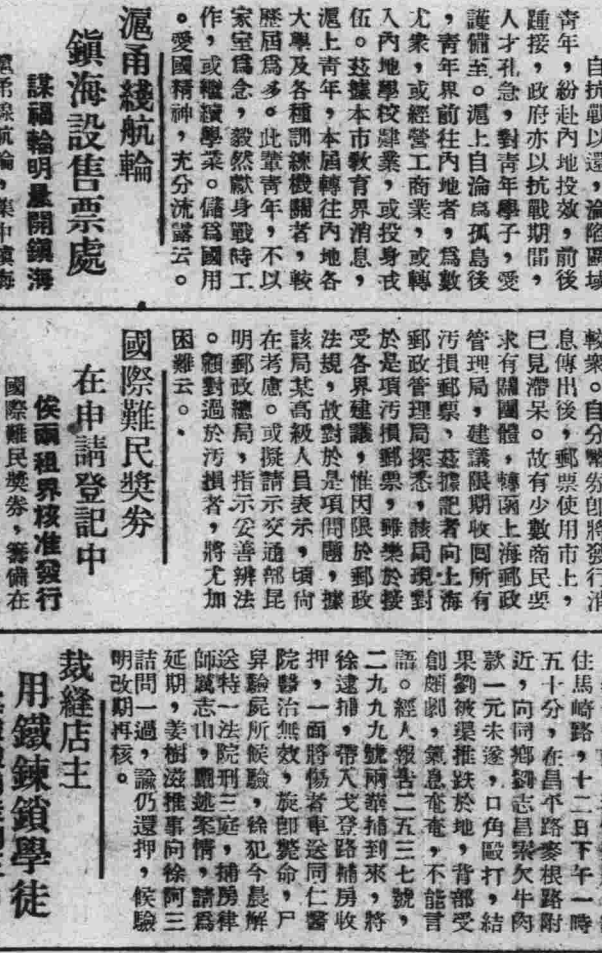 自抗戰以還，淪陷區域
青年，紛赴內地投效，前後
踵接，政府亦以抗戰期間，
人才孔急，對青年學子，愛
護備至。滬上自淪爲孤島後
，青年界前往內地者，爲數
尤衆，或經營工商業，或轉
入內地學校肄業，或投身戎
伍。茲據本市敎育界消息，
滬上青年，本屆轉往內地各
大學及各種訓練機關者，較
歷屆爲多。此輩青年，不以
家室爲念，毅然獻身戰時工
作，或繼續學業。儲爲國用
。愛國精神，充分流露云。
滬甬綫航輪
鎭海設售票處
謀福輪明晨開鎭海
滬甬線航輪，集中鎭海
較衆。自分幣券即將發行消
息傳出後，郵票使用市上，
已見滯呆。故有少數商民要
求有關團體，轉函上海郵政
管理局，建議限期收回所有
汚損郵票、茲據記者向上海
郵政管理局探悉，該局現對
於是項汚損郵票，雖樂於接
受各界建議，惟因限於郵政
法規，故對於是項問題，據
該局某高級人員表示，頃尙
在考慮。或擬請示交通部昆
明郵政總局，指示妥善辦法
。顧對過於汚損者，將尤加
困難云。
國際難民獎券
在申請登記中
俟兩租界核准發行
國際難民獎券，籌備在
住馬崎路，十二日下午一時
五十分，在昌平路麥根路附
近，向同鄕劉志昌索欠牛肉
款一元未遂，口角毆打，結
果劉被渠推跌於地，背部受
創頗劇，氣息奄奄，不能言
語。經人報告二五三七號，
二九九九號兩華捕到來，將
徐逮捕，帶入戈登路捕房收
押，一面將傷者車送同仁醫
院醫治無效，旋卽斃命，尸
舁驗屍所候驗，徐犯今晨解
送特一法院刑三庭，捕房律
師厲志山，陳述案情，請爲
延期，姜樹滋推事向徐阿三
詰問一過，諭仍還押，候驗
明改期再核。
裁縫店主
用鐵鍊鎖學徒